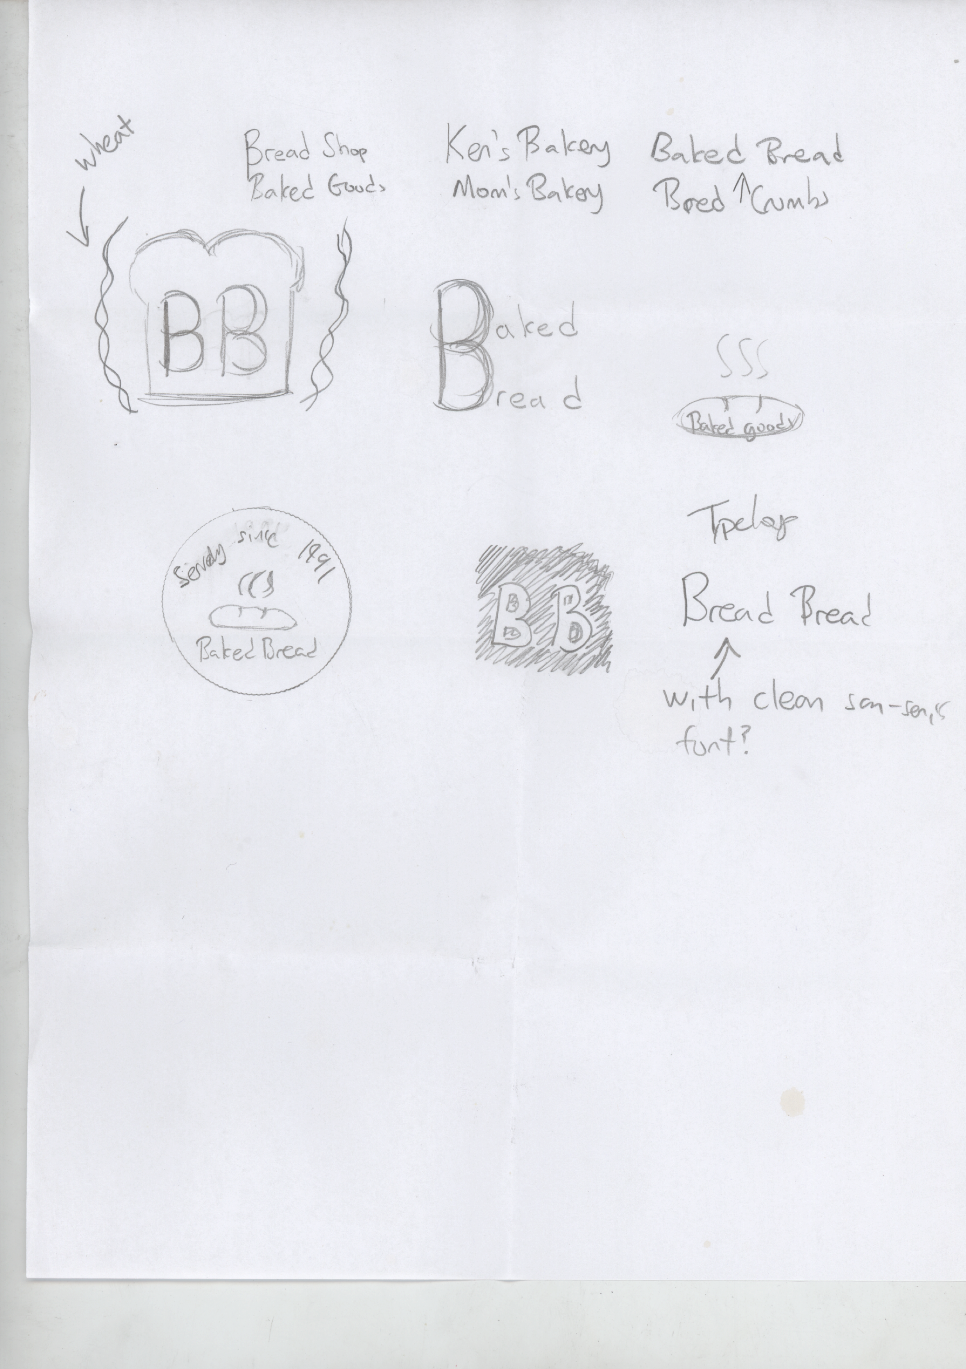 wheat
Bread Shop
Baked Goods
Ken's Bakery
Mom's Bakery
Baked Bread
Bred Crumbs
BB
Baked
Bread
Baked goods
since
Baked Bread
BB
Bread Bread
with clean
font?